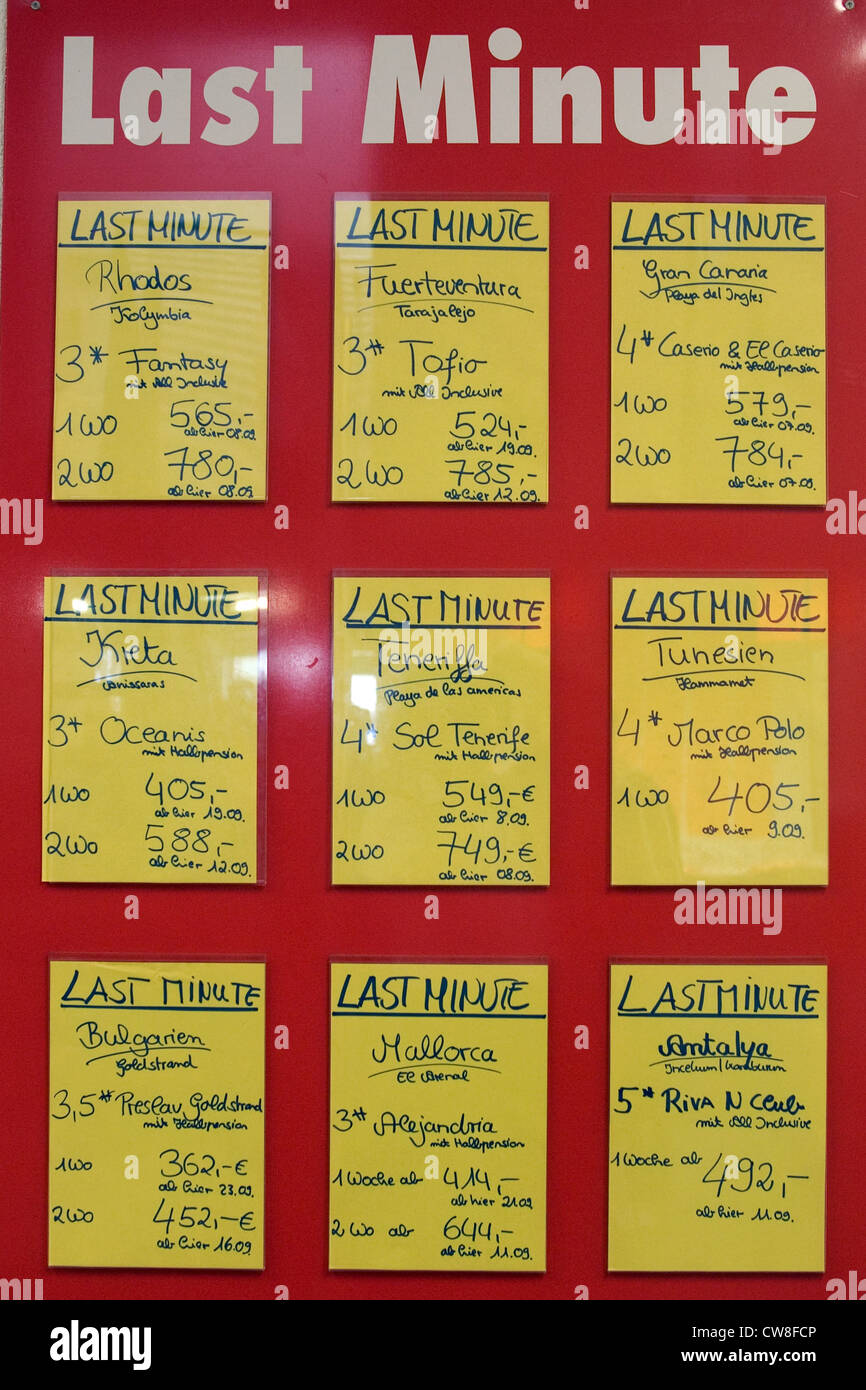 Last Minute
LAST MINUTE
Rhodos
Kolymbia
3* Fantasy
mit All Inclusive
1WO 565,-
ab hier 08.09.
2WO 780,-
ab hier 08.09.
LAST MINUTE
Fuerteventura
Tarajalejo
3* Tofio
mit All Inclusive
1WO 524,-
ab hier 19.09.
2WO 785,-
ab hier 12.09.
LAST MINUTE
Gran Canaria
Playa del Ingles
4* Caserio & El Caserio
mit Halbpension
1WO 579,-
ab hier 07.09.
2WO 784,-
ab hier 07.09.
LAST MINUTE
Kreta
Anissaras
3* Oceanis
mit Halbpension
1WO 405,-
ab hier 19.09.
2WO 588,-
ab hier 12.09.
LAST MINUTE
Teneriffa
Playa de las americas
4* Sol Tenerife
mit Halbpension
1WO 549,-€
ab hier 8.09.
2WO 749,-€
ab hier 08.09.
LAST MINUTE
Tunesien
Hammamet
4* Marco Polo
mit Halbpension
1WO 405,-
ab hier 9.09.
LAST MINUTE
Bulgarien
Goldstrand
3,5* Preslav, Goldstrand
mit Halbpension
1WO 362,-€
ab hier 23.09.
2WO 452,-€
ab hier 16.09.
LAST MINUTE
Mallorca
El Arenal
3* Alejandria
mit Halbpension
1Woche ab 414,-
ab hier 21.09
2 Wo ab 644,-
ab hier 11.09.
LAST MINUTE
Antalya
5* RIVA N Club
mit All Inclusive
1Woche ab 492,-
ab hier 11.09.
alamy
Image ID: CW8FCP
www.alamy.com